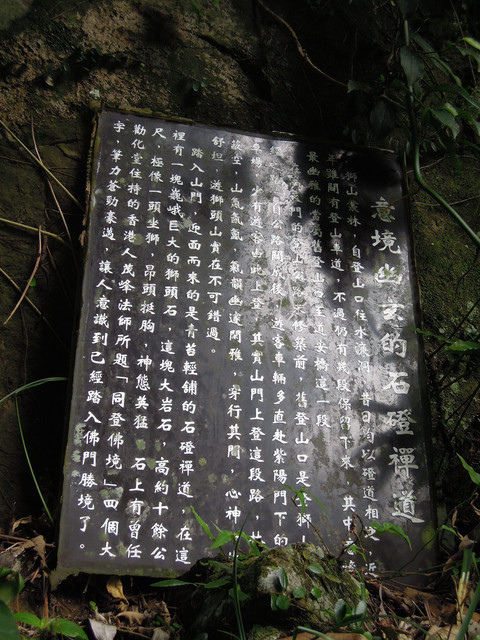 意境幽玄的石磴禪道
獅山叢林，自登山口往水濂洞，昔日均以磴道相之，近
年雖間有登山車道，不過仍有幾段保存下來，其中
最幽雅的當屬舊登山口至道安橋這一段
門的登山公路未修築前，舊登山口是
自公路開成後，遊客車輛多直赴紫陽門下的
場，少有遊客由此上登，其實山門上登這段路，林
蔽空，山氣氤氳，氣韻幽邃閑雅，穿行其間，心神
舒坦，遊獅頭山實在不可錯過。
踏入山門，迎面而來的是青苔輕鋪的石磴禪道，在這
裡有一塊巍峨巨大的獅頭石，這塊大岩石，高約十餘公
尺，極像一頭坐獅，昂頭挺胸，神態英猛，石上有曾任
勸化堂住持的香港人茂峰法師所題「同登佛境」四個大
字，筆力蒼勁豪邁，讓人意識到已經踏入佛門勝境了。